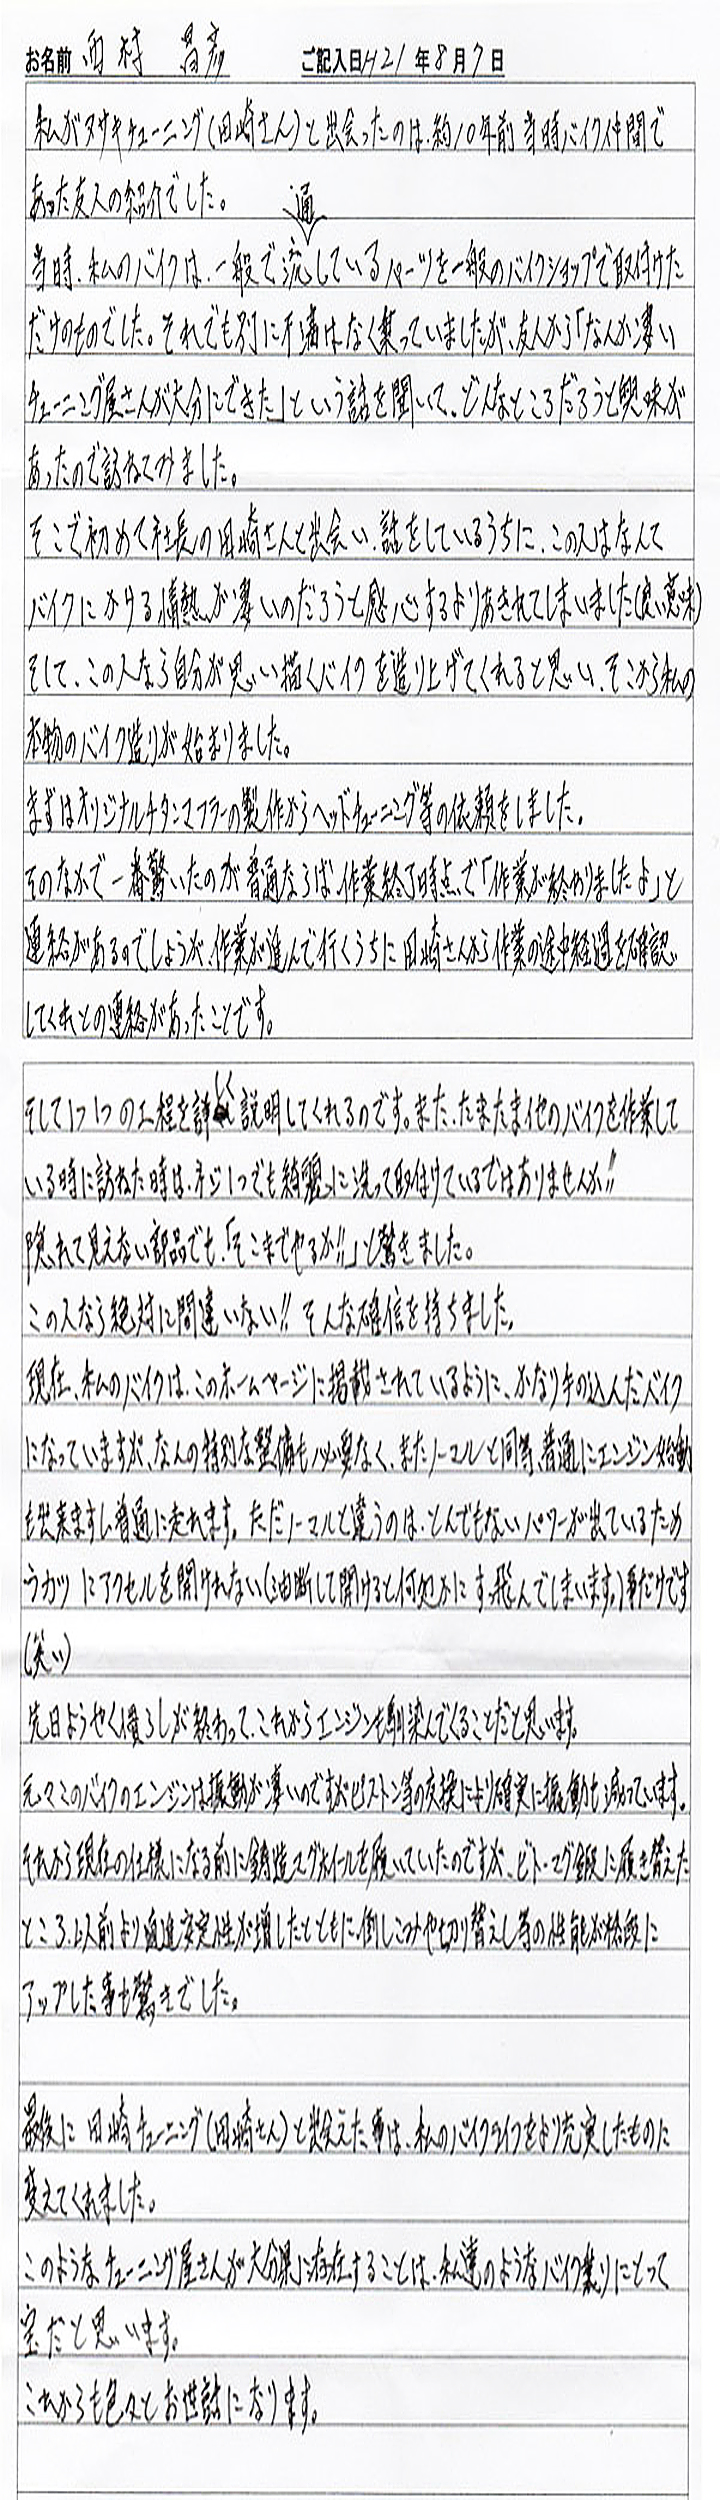 お名前 西村 昌彦 ご記入日 H21年8月7日
私がタサキチューニング(田崎さん)と出会ったのは、約10年前当時バイク仲間で
あった友人の紹介でした。
通
当時、私のバイクは、一般で流しているパーツを一般のバイクショップで取付けた
だけのものでした。それでも別に不満はなく乗っていましたが、友人から「なんか凄い
チューニング屋さんが大分にできた」という話を聞いて、どんなところだろうと興味が
あったので訪ねてみました。
そこで初めて社長の田崎さんと出会い、話をしているうちに、この人はなんて
バイクにかける情熱が凄いのだろうと感心するよりあきれてしまいました(良い意味)
そして、この人なら自分が思い描くバイクを造り上げてくれると思い、そこから私の
本物のバイク造りが始まりました。
まずはオリジナルチタンマフラーの製作からヘッドチューニング等の依頼をしました。
そのなかで一番驚いたのが普通ならば、作業終了時点で「作業が終わりましたよ」と
連絡があるのでしょうが、作業が進んで行くうちに田崎さんから作業の途中経過を確認
してくれとの連絡があったことです。
そして1つ1つの工程を詳しく説明してくれるのです。また、たまたま他のバイクを作業して
いる時に訪ねた時は、ネジ1つでも綺麗に洗って取付けているではありませんか!!
隠れて見えない部品でも、「そこまでやるか!!」と驚きました。
この人なら絶対に間違いない!! そんな確信を持ちました。
現在、私のバイクは、このホームページに掲載されているように、かなり手の込んだバイク
になっていますが、なんの特別な整備も必要なく、またノーマルと同等、普通にエンジン始動
も出来ますし普通に走れます。ただノーマルと違うのは、とんでもないパワーが出ているため
ラカツにアクセルを開けれない(油断して開けると何処かにすっ飛んでしまいます。)事だけです
(笑い)
先日ようやく慣らしが終わって、これからエンジンも馴染んでくることだと思います。
元々このバイクのエンジンは振動が凄いのですがピストン等の交換により確実に振動も減っています。
それから現在の仕様になる前に鋳造マグホイールを履いていたのですが、ビトーマグ鍛に履き替えた
ところ、以前より直進安定性が増したとともに、倒しこみや切り替えし等の性能が格段に
アップした事も驚きでした。
最後に田崎チューニング(田崎さん)と出会えた事は、私のバイクライフをより充実したものに
変えてくれました。
このようなチューニング屋さんが大分県に存在することは、私達のようなバイク乗りにとって
宝だと思います。
これからも色々とお世話になります。